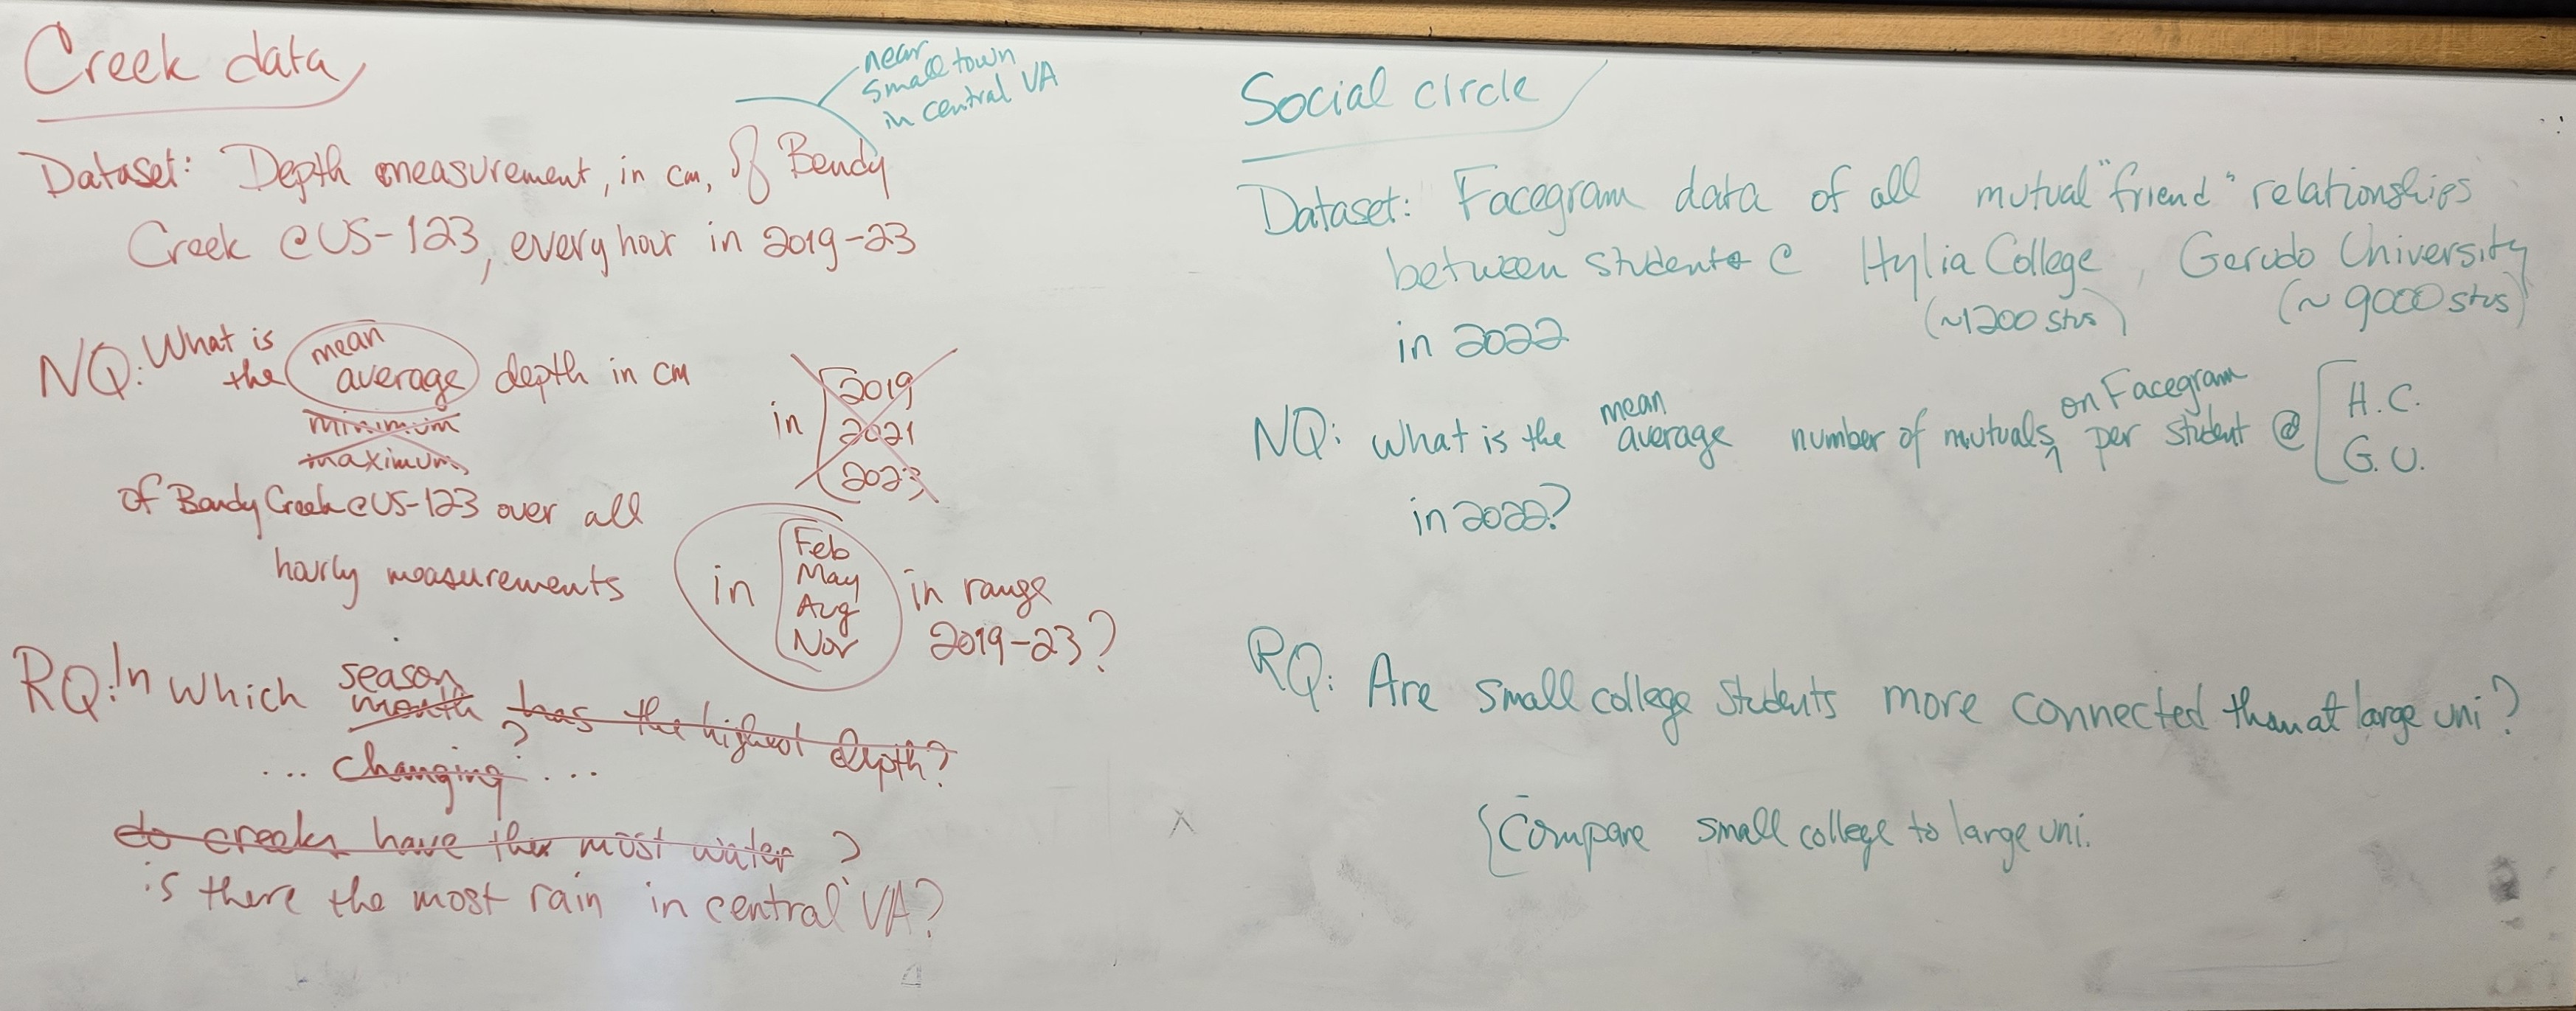 Creek data
near
small town
in central VA
Dataset: Depth measurement, in cm, of Bendy
Creek @ US-123, every hour in 2019-23
NQ: What is the mean average depth in cm
minimum
maximum
in 2019
2021
2023
of Bendy Creek @ US-123 over all
hourly measurements
in Feb
May
Aug
Nov
in range
2019-23?
RQ: In which season
month has the highest depth?
... changing? ...
do creeks have the most water ?
is there the most rain in central VA?
Social circle
Dataset: Facegram data of all mutual "friend" relationships
between students @ Hylia College, Gerudo University
(~1200 stus) (~9000 stus)
in 2022
NQ: What is the mean average number of mutuals on Facegram per student @ H.C.
G.U.
in 2022?
RQ: Are small college students more connected than at large uni?
Compare small college to large uni.